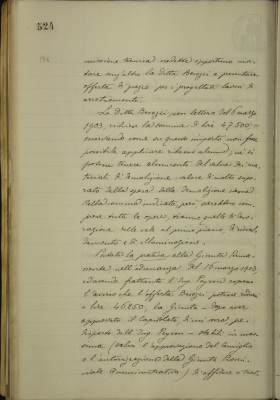 524
missione tecnica vedesse opportuno in-
vitare anzi la ditta Borgzi a presentare
offerta di prezzo per i progettati lavori di
arretramento.
La ditta Borgzi, con lettera del 6 marzo
1903, richiese la somma di lire 47.500 =
osservando come su questo importo non fosse
possibile applicare ribassi alcuni, nè si
potesse tenere alcun conto del valore dei ma-
teriali di demolizione, valore di molto supe-
rato dalla spesa della demolizione stessa.
Nella somma indicata, però sarebbero com-
prese tutte le opere, tranne quelle di deco-
razione delle sale al primo piano, di riscal-
damento e di illuminazione.
Portata la pratica alla Giunta Muni-
cipale nell'adunanza del 18 marzo 1903,
ed avendo frattanto l'Ing. Peyron espresso
l'avviso che l'offerta Borgzi potesse ridursi
a lire 46.250 la Giunta = dopo avere
approvato il Capitolato, come sopra pre-
disposto dall'Ing. Peyron = stabilì in mas-
sima (salvo l'approvazione del Consiglio
e l'autorizzazione della Giunta Provin-
ciale Amministrativa) di affidare a trat-